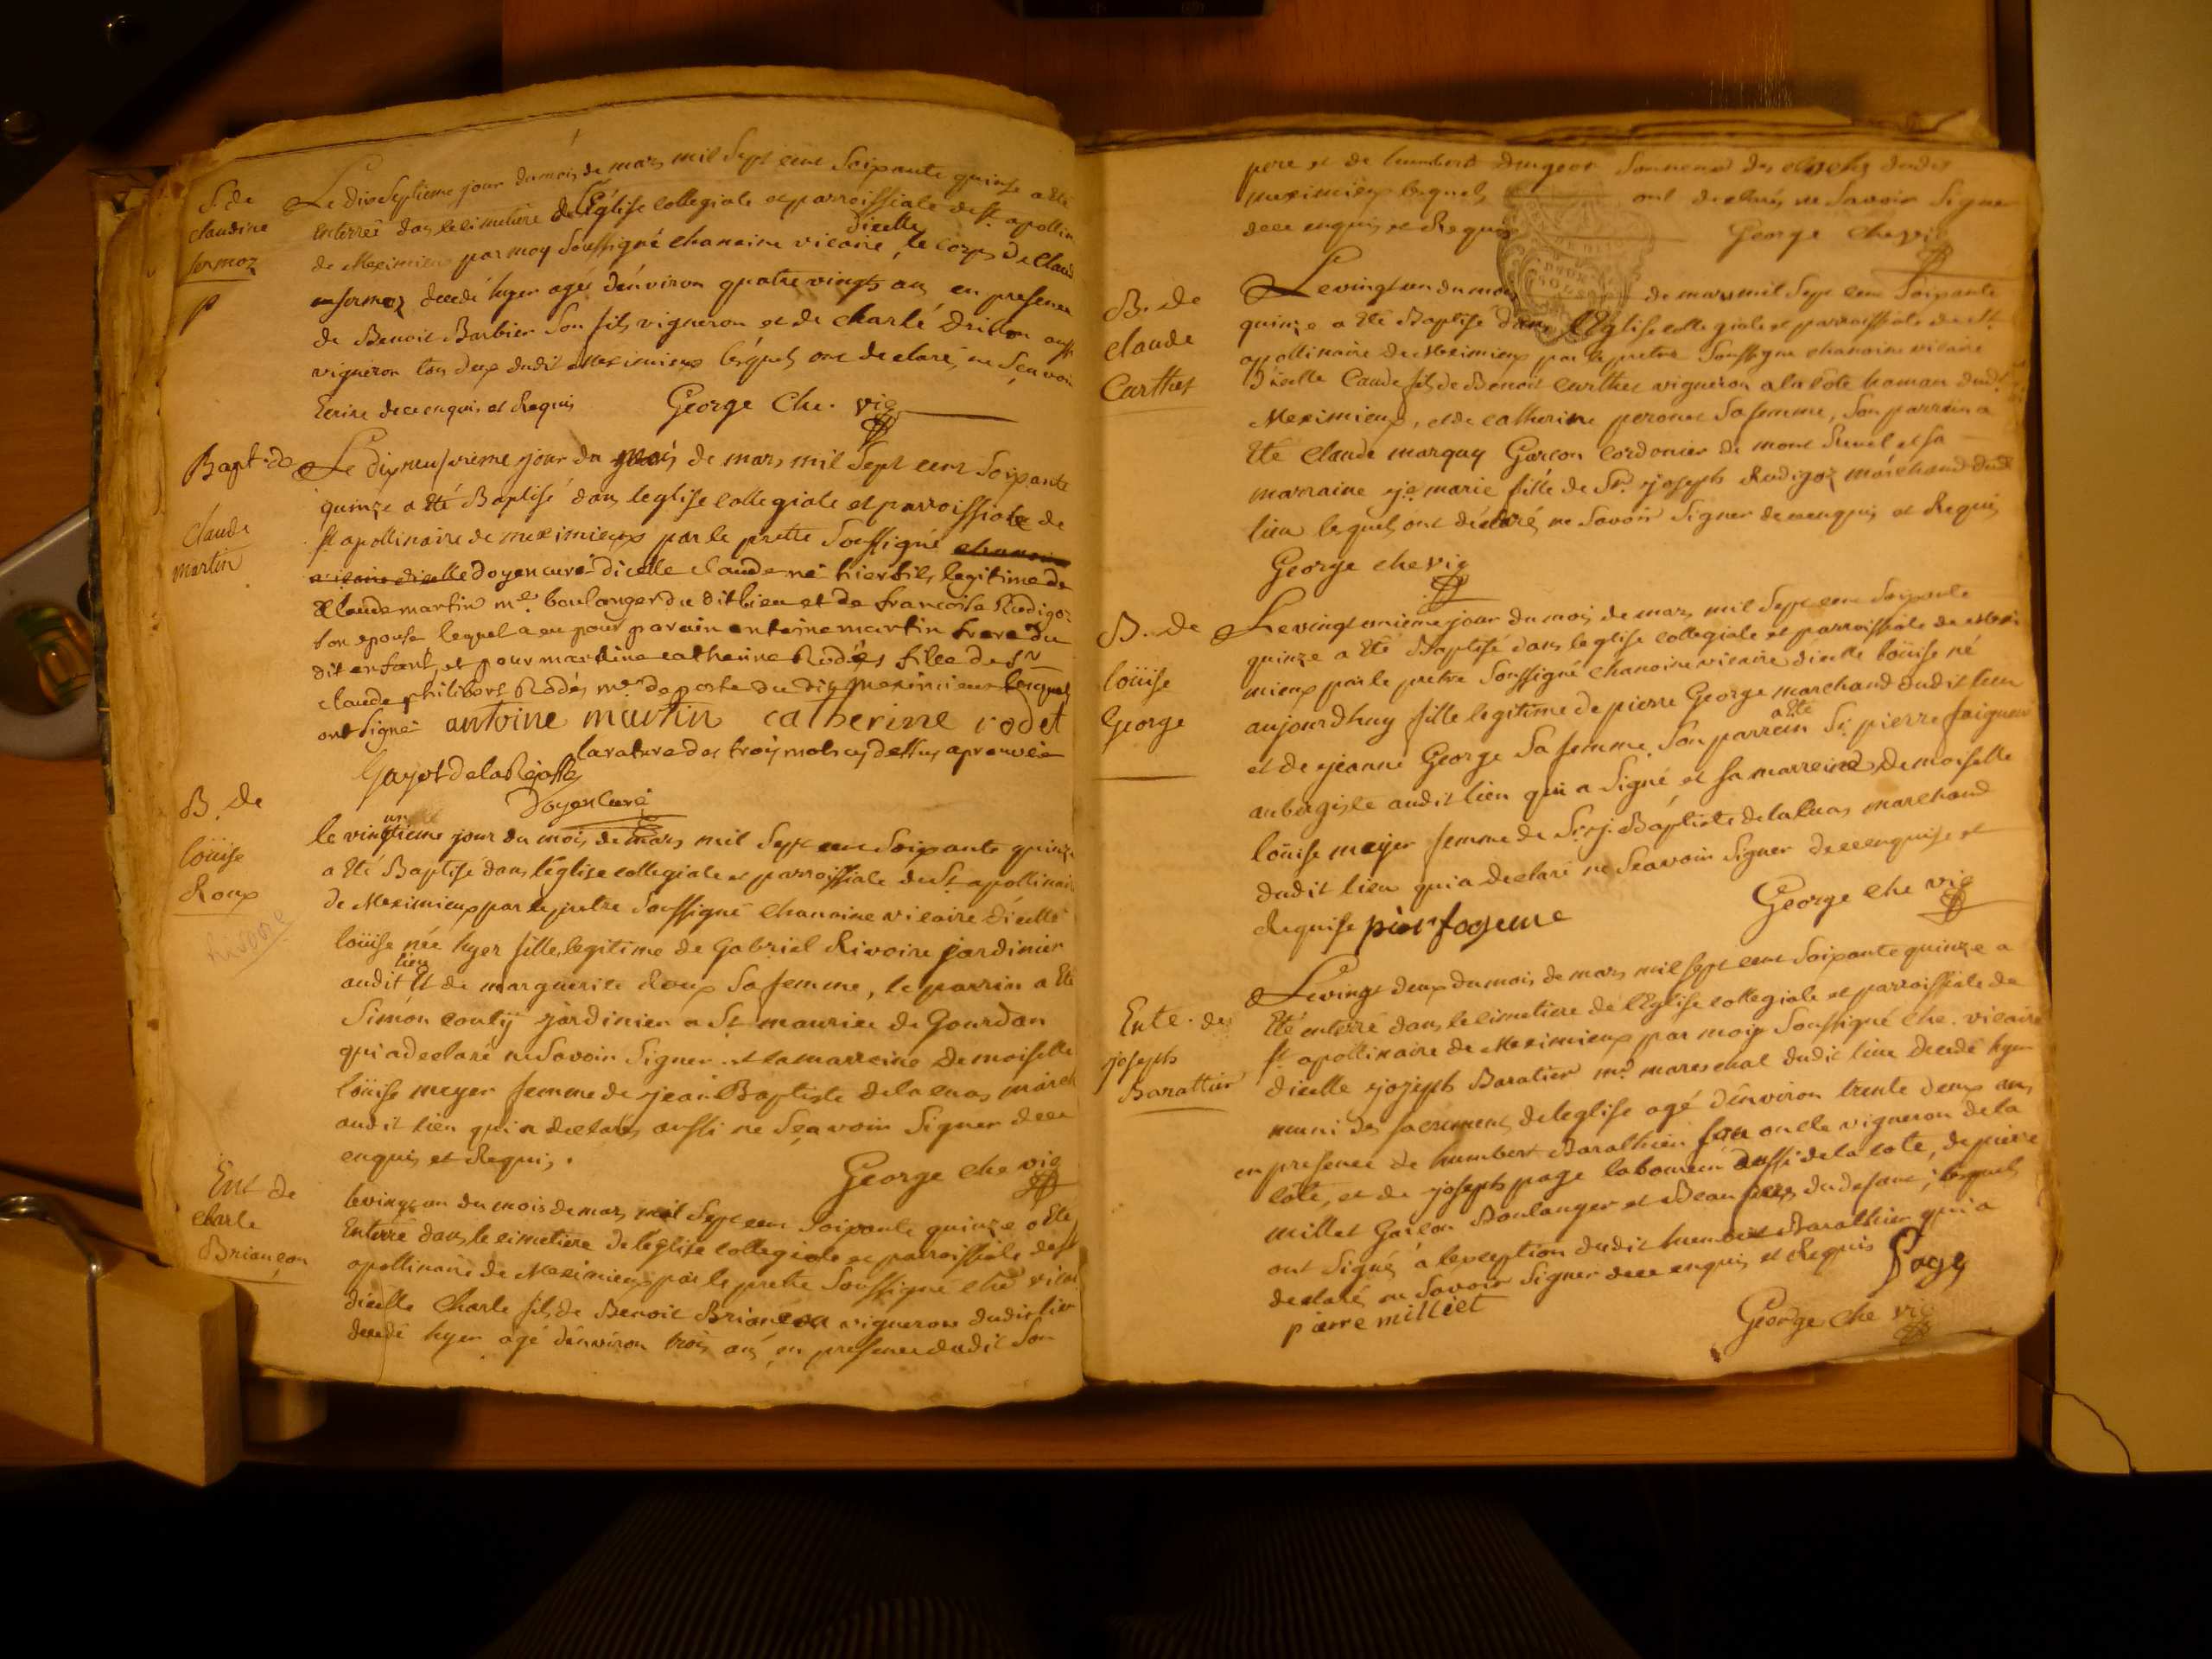 S. de
claudine
sermoz
Le dixseptieme jour du mois de mars mil Sept cent Soixante quinse a Eté
Enterreé dans le cimetiere de l'Eglise collegiale et parroissiale de st. apollin
de Meximieux par moy Soussigné chanoine vicaire dicelle, le corps de Claud
sermoz decedé hyer ageé d'environ quatre vingts ans en presence
de Benoit Barbier Son fils vigneron et de charle drillon aussi
vigneron tous deux dudit Meximieux lesquels ont declaré ne Seavoir
Ecrire de ce enquis et Requis George Che. vic
Bapt. de
claude
martin
Le dixneufvieme jour du mois de mars mil Sept cent Soixante
quinze a Eté Baptisé dans leglise collegiale et parroissiale de
st apollinaire de meximieux par le pretre Soussigné chanoine
vicaire dicelle doyen curé dicelle claude né hier fils legitime de
claude martin me. boulanger du dit lieu et de francoise Rudigoz
son epouse lequel a eu pour parain antoine martin frere du
dit enfant, et pour maraine catherine Rodés fille de Sr
claude philibert Rodés me. de poste du dit meximieux lesquels
ont Signé antoine martin catherine rodet
la rature des trois mots cy dessus aprouvée
Gayot de la Rejasse
Doyen Curé
B. de
loüise
Roux
Rivoire
le vingt un ieme jour du mois de mars mil Sept cent Soixante quinze
a Eté Baptisé dans l'eglise collegiale et parroissiale de St apollinair
de Meximieux par le pretre Soussigné chanoine vicaire dicelle
loüise née hyer fille legitime de Gabriel Rivoire jardinier
audit lieu Et de marguerite Roux Sa femme, le parrin a Eté
Simon couty jardinier a St maurice de Gourdan
qui a declaré ne Savoir Signer et la marreine Demoiselle
loüise meyer femme de jean Baptiste delacuas march
audit lieu qui a declaré aussi ne Seavoir Signer de ce
enquis et Requis. George che vic
Ent de
charle
Briançon
le vingt un du mois de mars mil Sept cent Soixante quinze a Eté
Enterré dans le cimetiere de l'eglise collegiale et parroissiale de st
apollinaire de Meximieux par le pretre Soussigné che vicai
dicelle Charle fils de Benoit Briançon vigneron dudit lieu
decedé hyer agé d'environ trois ans, en presence dudit Son
pere et de humbert Dugeot Sonneur des cloches dudit
meximieux lesquels ont declarés ne Savoir Signer
de ce enquis et Requis George che vic
B. de
claude
Carthet
Le vingt un du mois de mars mil Sept cent Soixante
quinze a Eté Baptisé dans l'Eglise collegiale et parroissiale de St
apollinaire de Meximieux par le pretre Soussigné chanoine vicaire
dicelle Claude fils de Benoit Carthet vigneron a la Cote hameau dudt
Meximieux, et de catherine peronet Sa femme, Son parrain a
Eté Claude marquay Garçon Cordonier de mont Luuel et Sa
marraine je. marie fille de Sr. joseph Rudigoz marchand dudt
lieu lesquels ont déclaré ne Savoir Signer de ce enquis et Requis
George che vic
B. de
loüise
George
Le vingt unieme jour du mois de mars mil Sept cent Soixante
quinze a Eté Baptisé dans leglise collegiale et parroissiale de Mexi
mieux par le pretre Soussigné chanoine vicaire dicelle loüise né
aujourdhuy fille legitime de pierre George marchand dudit lieu
et de jeanne George Sa femme. Son parrein a Eté Sr. pierre
aubergiste audit lieu qui a Signé et Sa marreine Demoiselle
loüise meyer femme de Sr. j. Baptiste delacuas marchand
dudit lieu qui a declaré ne Seavoir Signer de ce enquise et
Requise George che vic
Ente. de
joseph
Barattier
Le vingt deux du mois de mars mil Sept cent Soixante quinze a
Eté enterré dans le cimetiere de l'Eglise collegiale et parroissiale de
st apollinaire de Meximieux par moy Soussigné che. vicaire
dicelle joseph Baratier md mareschal dudit lieu decedé hyer
muni des sacrements de leglise agé d'environ trente deux ans
en presence de humbert Barathier son oncle vigneron de la
Cote, et de joseph page laboureur aussi de la cote, de pierre
millet Garçon Boulanger et Beau frere du defunt, lesquels
ont Signés a lexception dudit humbert Barathier qui a
declaré ne Savoir Signer de ce enquis et Requis Page
pierre milliet George che vic